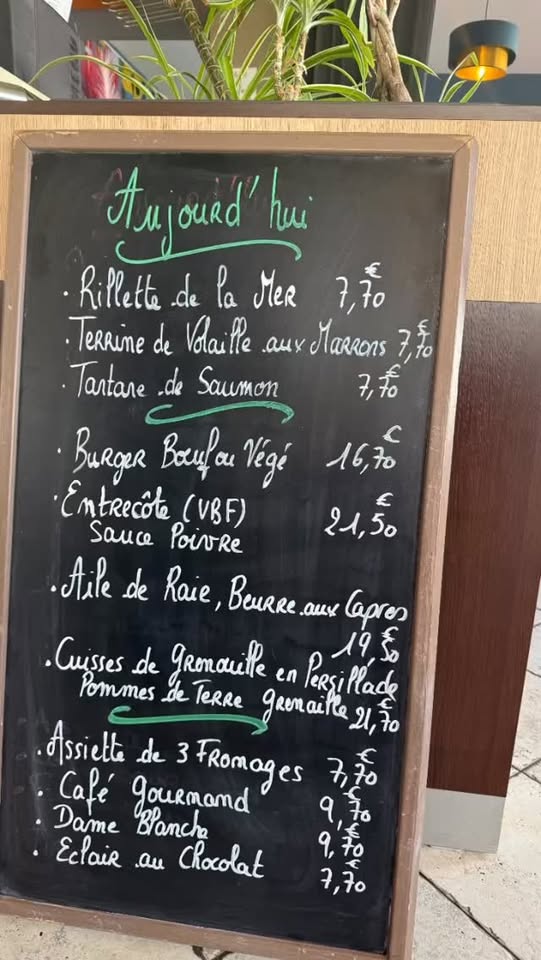 Aujourd'hui
· Rillette de la Mer 7,70 €
· Terrine de Volaille aux Marrons 7,70 €
· Tartare de Saumon 7,70 €
· Burger Boeuf ou Végé 16,70 €
· Entrecôte (VBF)
Sauce Poivre 21,50 €
· Aile de Raie, Beurre aux Capres
19,50 €
· Cuisses de Grenouille en Persillade
Pommes de Terre Grenaille 21,70 €
· Assiette de 3 Fromages 7,70 €
· Café Gourmand 9,70 €
· Dame Blanche 9,70 €
· Eclair au Chocolat 7,70 €